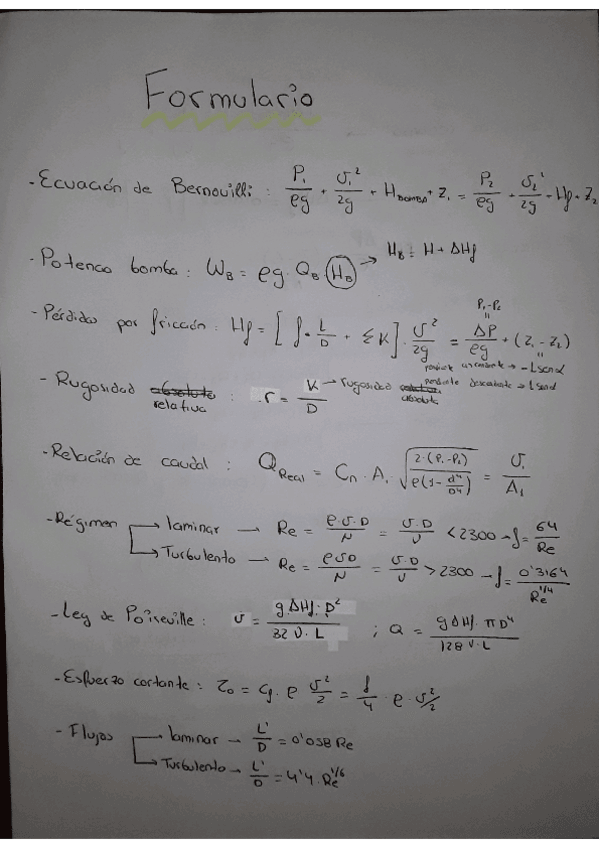 Formulario
- Ecuación de Bernouilli : P₁/ρg + v₁²/2g + H_BOMBA + Z₁ = P₂/ρg + v₂²/2g + Hf + Z₂
- Potenca bomba : W_B = ρg · Q_B · H_B → H_B = H + ΔHf
- Pérdidas por fricción : Hf = [ f · L/D + ΣK ] · v²/2g = ΔP/ρg + (Z₁ - Z₂)
P₁-P₂
=
pendiente ascendente → -L senα
pendiente descendente → L senα
- Rugosidad relativa : r = K/D
K → rugosidad absoluta
- Relación de caudal : Q_Real = Cn · A₁ √(2·(P₁-P₂)/ρ(1-d⁴/D⁴)) = v₁/A₁
- Régimen → laminar → Re = ρ·v·D/N = v·D/ν < 2300 → f = 64/Re
→ Turbulento → Re = ρvD/N = v·D/ν > 2300 → f = 0'3164/Re^1/4
- Ley de Poiseville : v = g·ΔHf·D²/32 ν·L ; Q = gΔHf·πD⁴/128 ν·L
- Esfuerzo cortante : τ₀ = Cf · ρ v²/2 = f/4 · ρ · v²/2
- Flujos → laminar → L'/D = 0'058 Re
→ Turbulento → L'/D = 4'4 · Re^1/6